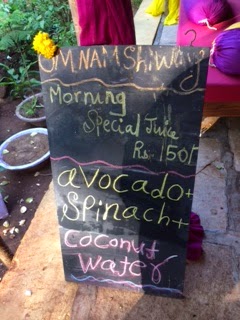 OM NAM SHIVAY
Morning
Special Juice
Rs. 150/-
avocado+
Spinach+
Coconut
Water